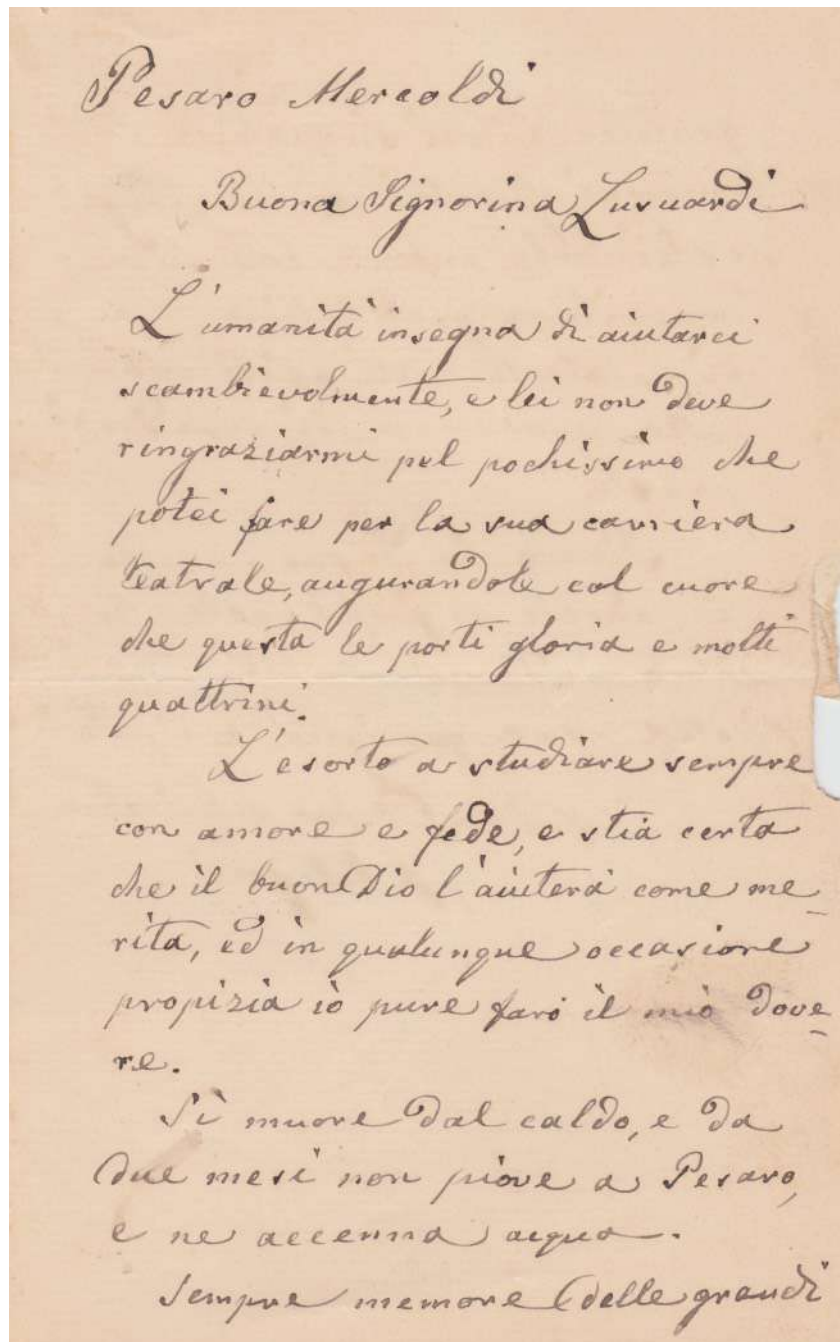 Pesaro Mercoldì
Buona Signorina Lusuardi
L'umanità insegna di aiutarci
scambievolmente, e lei non deve
ringraziarmi pel pochissimo che
potei fare per la sua carriera
teatrale, augurandole col cuore
che questa le porti gloria e molti
quattrini.
L'esorto a studiare sempre
con amore e fede, e stia certa
che il buon Dio l'aiuterà come me-
rita, ed in qualunque occasione
propizia io pure farò il mio dove-
re.
Si muore dal caldo, e da
due mesi non piove a Pesaro,
e ne accenna acqua.
Sempre memore delle grandi